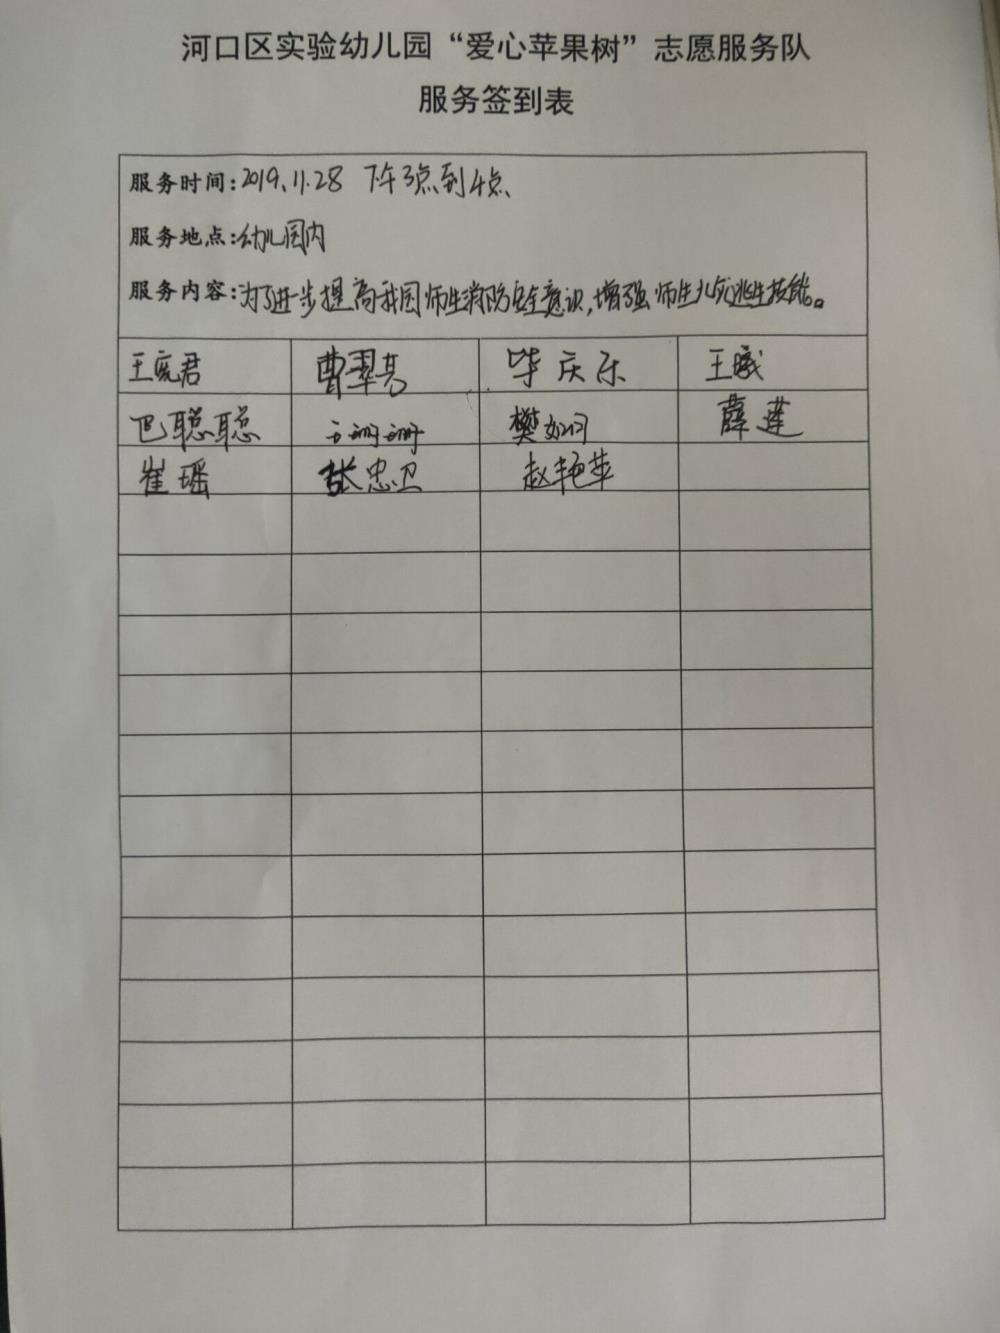 河口区实验幼儿园“爱心苹果树”志愿服务队
服务签到表
服务时间:2019.11.28 下午3点到4点
服务地点:幼儿园内
服务内容:为了进一步提高我园师生消防安全意识,增强师生火灾逃生技能。
王亮君 曹翠芳 毕庆乐 王彧
巴聪聪 王珊珊 樊如
崔瑶 张忠卫 赵艳萍 薛莲